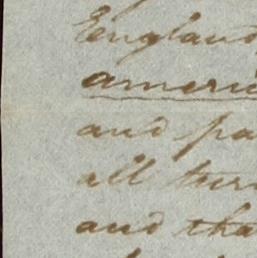 England
americ
and pa
all tur
and tha